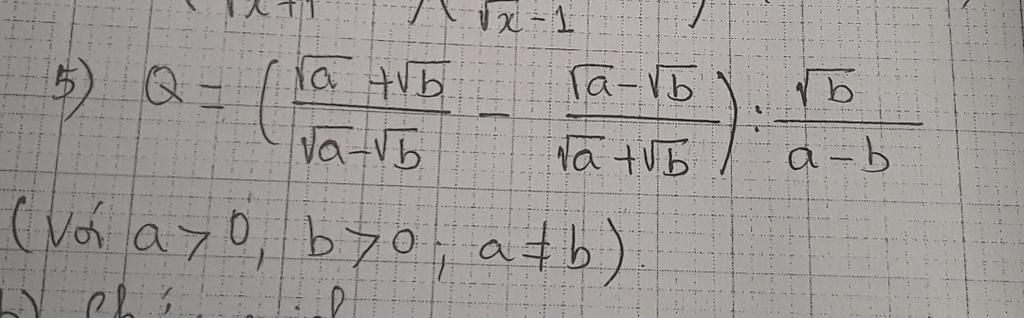 √x+1 )( √x-1 )
5) Q = ( (√a +√b)/(√a-√b) - (√a-√b)/(√a+√b) ) : √b/(a-b)
(Với a>0, b>0; a≠b)